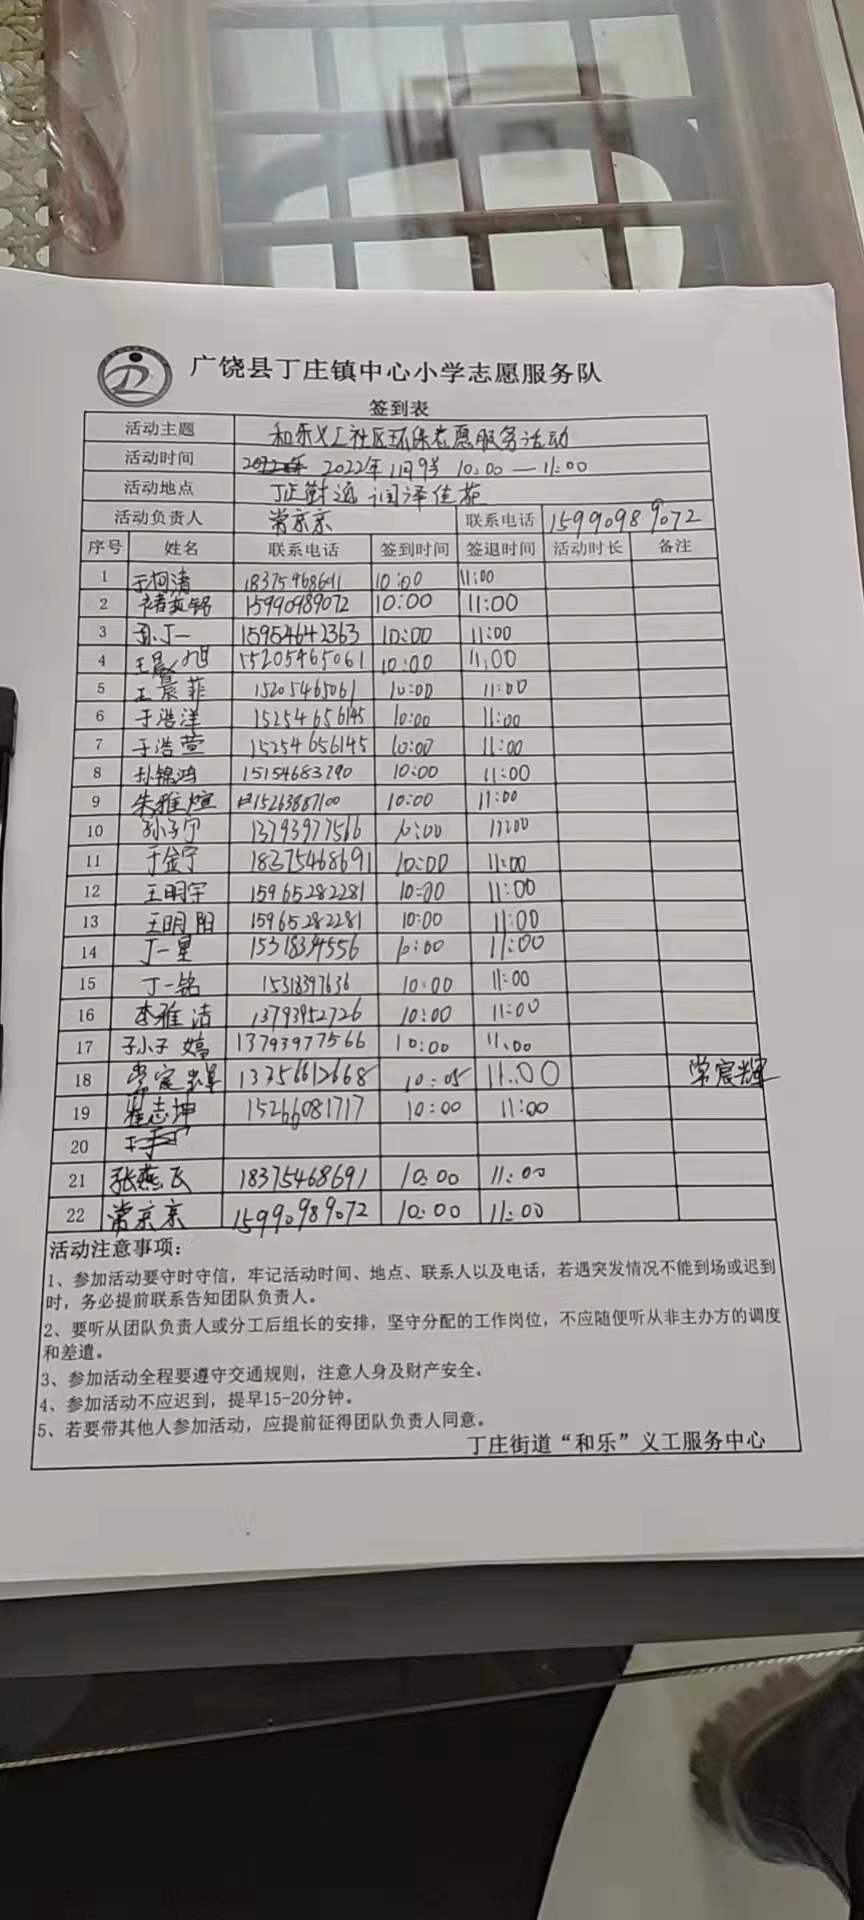 广饶县丁庄镇中心小学志愿服务队
签到表
活动主题 和乐义工社区环保志愿服务活动
活动时间 2022年1月9号 10:00—11:00
活动地点 润泽佳苑
活动负责人 常京京 联系电话 15990989072
序号 姓名 联系电话 签到时间 签退时间 活动时长 备注
1 于柯清 10:00 11:00
2 15990989072 10:00 11:00
3 孙丁一 15954642363 10:00 11:00
4 王晨旭 15205465061 10:00 11:00
5 王景菲 15205465061 10:00 11:00
6 于浩洋 15254656145 10:00 11:00
7 于浩萱 15254656145 10:00 11:00
8 孙锦鸿 15154683290 10:00 11:00
9 朱雅煊 15263887100 10:00 11:00
10 孙子宁 13793977566 10:00 11:00
11 于金宁 18375468691 10:00 11:00
12 王明宇 15965282281 10:00 11:00
13 王明阳 15965282281 10:00 11:00
14 丁一星 10:00 11:00
15 丁一铭 15318397636 10:00 11:00
16 李雅洁 13793952726 10:00 11:00
17 孙子嫣 13793977566 10:00 11:00
18 常宸辉 13356612668 10:05 11:00 常宸辉
19 崔志坤 15266081717 10:00 11:00
20
21 张燕飞 18375468691 10:00 11:00
22 常京京 15990989072 10:00 11:00
活动注意事项：
1、参加活动要守时守信，牢记活动时间、地点、联系人以及电话，若遇突发情况不能到场或迟到
时，务必提前联系告知团队负责人。
2、要听从团队负责人或分工后组长的安排，坚守分配的工作岗位，不应随便听从非主办方的调度
和差遣。
3、参加活动全程要遵守交通规则，注意人身及财产安全。
4、参加活动不应迟到，提早15-20分钟。
5、若要带其他人参加活动，应提前征得团队负责人同意。
丁庄街道“和乐”义工服务中心